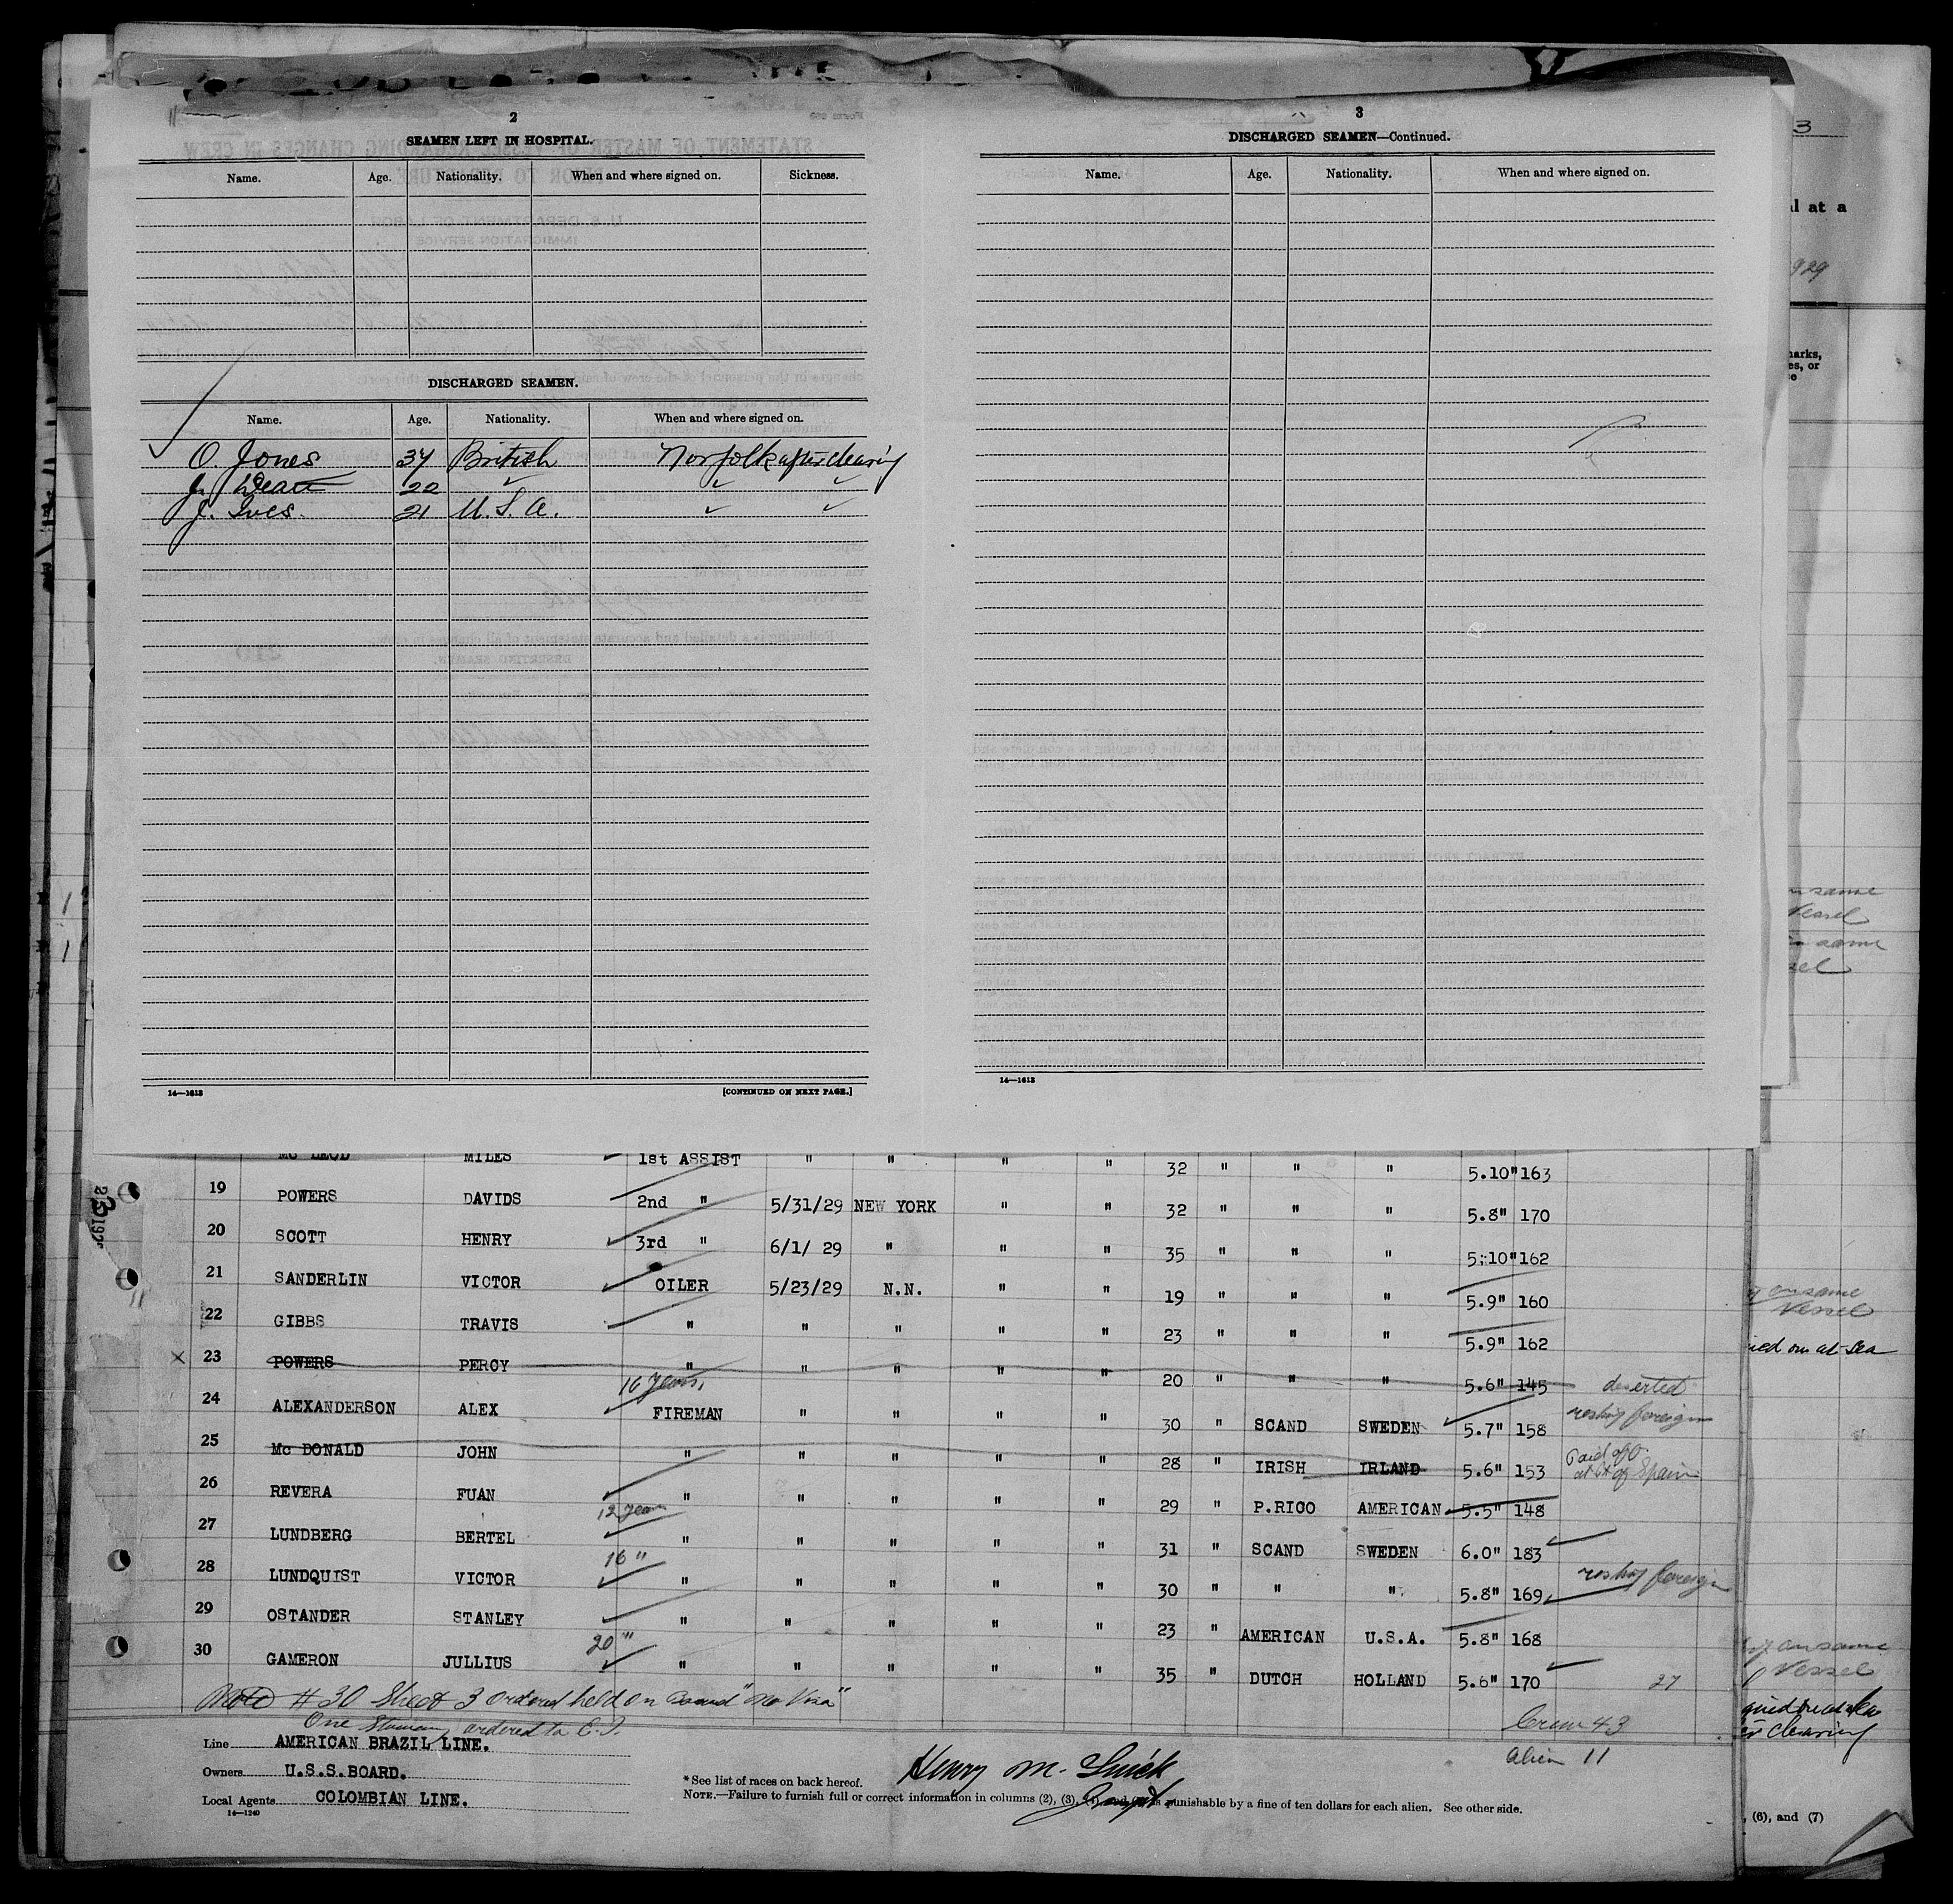 2
SEAMEN LEFT IN HOSPITAL.
Name. Age. Nationality. When and where signed on. Sickness.
DISCHARGED SEAMEN.
Name. Age. Nationality. When and where signed on.
O. Jones 37 British Norfolk after clearing
J. 22 ✓ ✓ ✓
J. Ives. 21 U.S.A. ✓ ✓
14—1613 [CONTINUED ON NEXT PAGE.]
3
DISCHARGED SEAMEN—Continued.
Name. Age. Nationality. When and where signed on.
14—1613
3
al at a
929
marks,
es, or
on same
Vessel
in same
on same
Vessel
ied on at sea
on same
Vessel
clearing
, (6), and (7)
Mc LEOD MILES 1st ASSIST " " " " 32 " " " 5.10" 163
19 POWERS DAVIDS 2nd " 5/31/29 NEW YORK " " 32 " " " 5.8" 170
20 SCOTT HENRY 3rd " 6/1/ 29 " " " 35 " " " 5:10" 162
21 SANDERLIN VICTOR OILER 5/23/29 N.N. " " 19 " " " 5.9" 160
22 GIBBS TRAVIS " " " " " 23 " " " 5.9" 162
23 POWERS PERCY " " " " " 20 " " " 5.6" 145 deserted
16 Years,
24 ALEXANDERSON ALEX FIREMAN " " " " 30 " SCAND SWEDEN 5.7" 158 reship foreign
25 Mc DONALD JOHN " " " " " 28 " IRISH IRLAND 5.6" 153 Paid off at Pt of Spain
26 REVERA FUAN " " " " " 29 " P.RICO AMERICAN 5.5" 148
12 Years
27 LUNDBERG BERTEL " " " " " 31 " SCAND SWEDEN 6.0" 183
16 "
28 LUNDQUIST VICTOR " " " " " 30 " " " 5.8" 169 reship foreign
29 OSTANDER STANLEY " " " " " 23 " AMERICAN U.S.A. 5.8" 168
20 "
30 GAMERON JULLIUS " " " " " 35 " DUTCH HOLLAND 5.6" 170 27
Note #30 Sheet 3 ordered held on Board "No Visa"
One ordered to
Crew 43
Alien 11
Line AMERICAN BRAZIL LINE.
Owners U.S.S.BOARD.
Local Agents COLOMBIAN LINE.
14—1240
Henry M.
* See list of races on back hereof.
NOTE.—Failure to furnish full or correct information in columns (2), (3), is punishable by a fine of ten dollars for each alien. See other side.